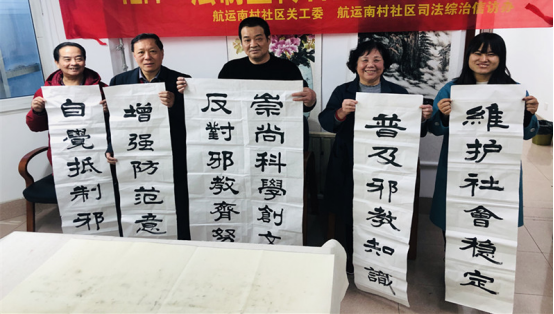 法制宣传
航运南村社区关工委 航运南村社区司法综治信访
自覺抵制邪
增强防范意
崇尚科學創文
反對邪教齊努
普及邪教知識
維护社會穩定